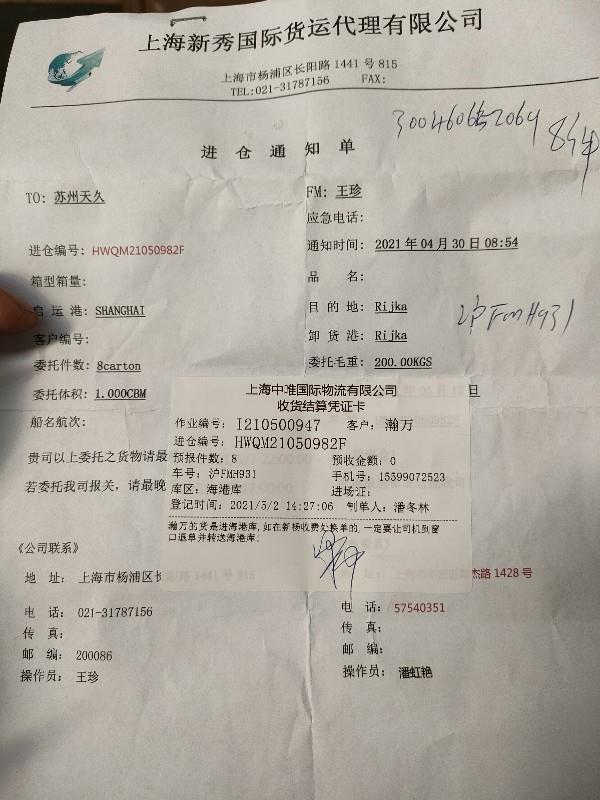 上海新秀国际货运代理有限公司
上海市杨浦区长阳路 1441 号 815
TEL:021-31787156 FAX:
进仓通知单
TO: 苏州天久
FM: 王珍
应急电话:
进仓编号: HWQM21050982F
通知时间: 2021 年 04 月 30 日 08:54
箱型箱量:
品 名:
启运港: SHANGHAI
目的地: Rijka
沪FMH931
客户编号:
卸货港: Rijka
委托件数: 8carton
委托毛重: 200.00KGS
委托体积: 1.000CBM
日
船名航次:
贵司以上委托之货物请最
若委托我司报关,请最晚
上海中堆国际物流有限公司
收货结算凭证卡
作业编号: I210500947 客户: 瀚万
进仓编号: HWQM21050982F
预报件数: 8 预收金额: 0
车号: 沪FMH931 手机号: 15599072523
库区: 海港库 进场证:
登记时间: 2021/5/2 14:27:06 制单人: 潘冬林
瀚万的货是进海港库,如在新杨收费处换单的,一定要让司机到窗
口退单并转送海港库;
《公司联系》
地 址: 上海市杨浦区长
杰路 1428 号
电 话: 021-31787156
电 话: 57540351
传 真:
传 真:
邮 编: 200086
邮 编:
操作员: 王珍
操作员: 潘虹艳